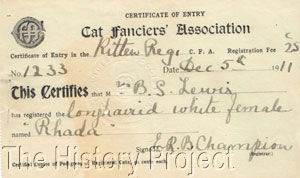 CERTIFICATE OF ENTRY
Cat Fanciers' Association
Certificate of Entry in the Kitten Reg. C. F. A. Registration Fee 25
No. 1233 Date Dec 5th 1911
This Certifies that M B. S. Lewis
has registered the longhaired white female
named "Rhada"
Signed E. R. B. Champion
(Registrar.)
Certified Copies of Pedigrees
The History Project